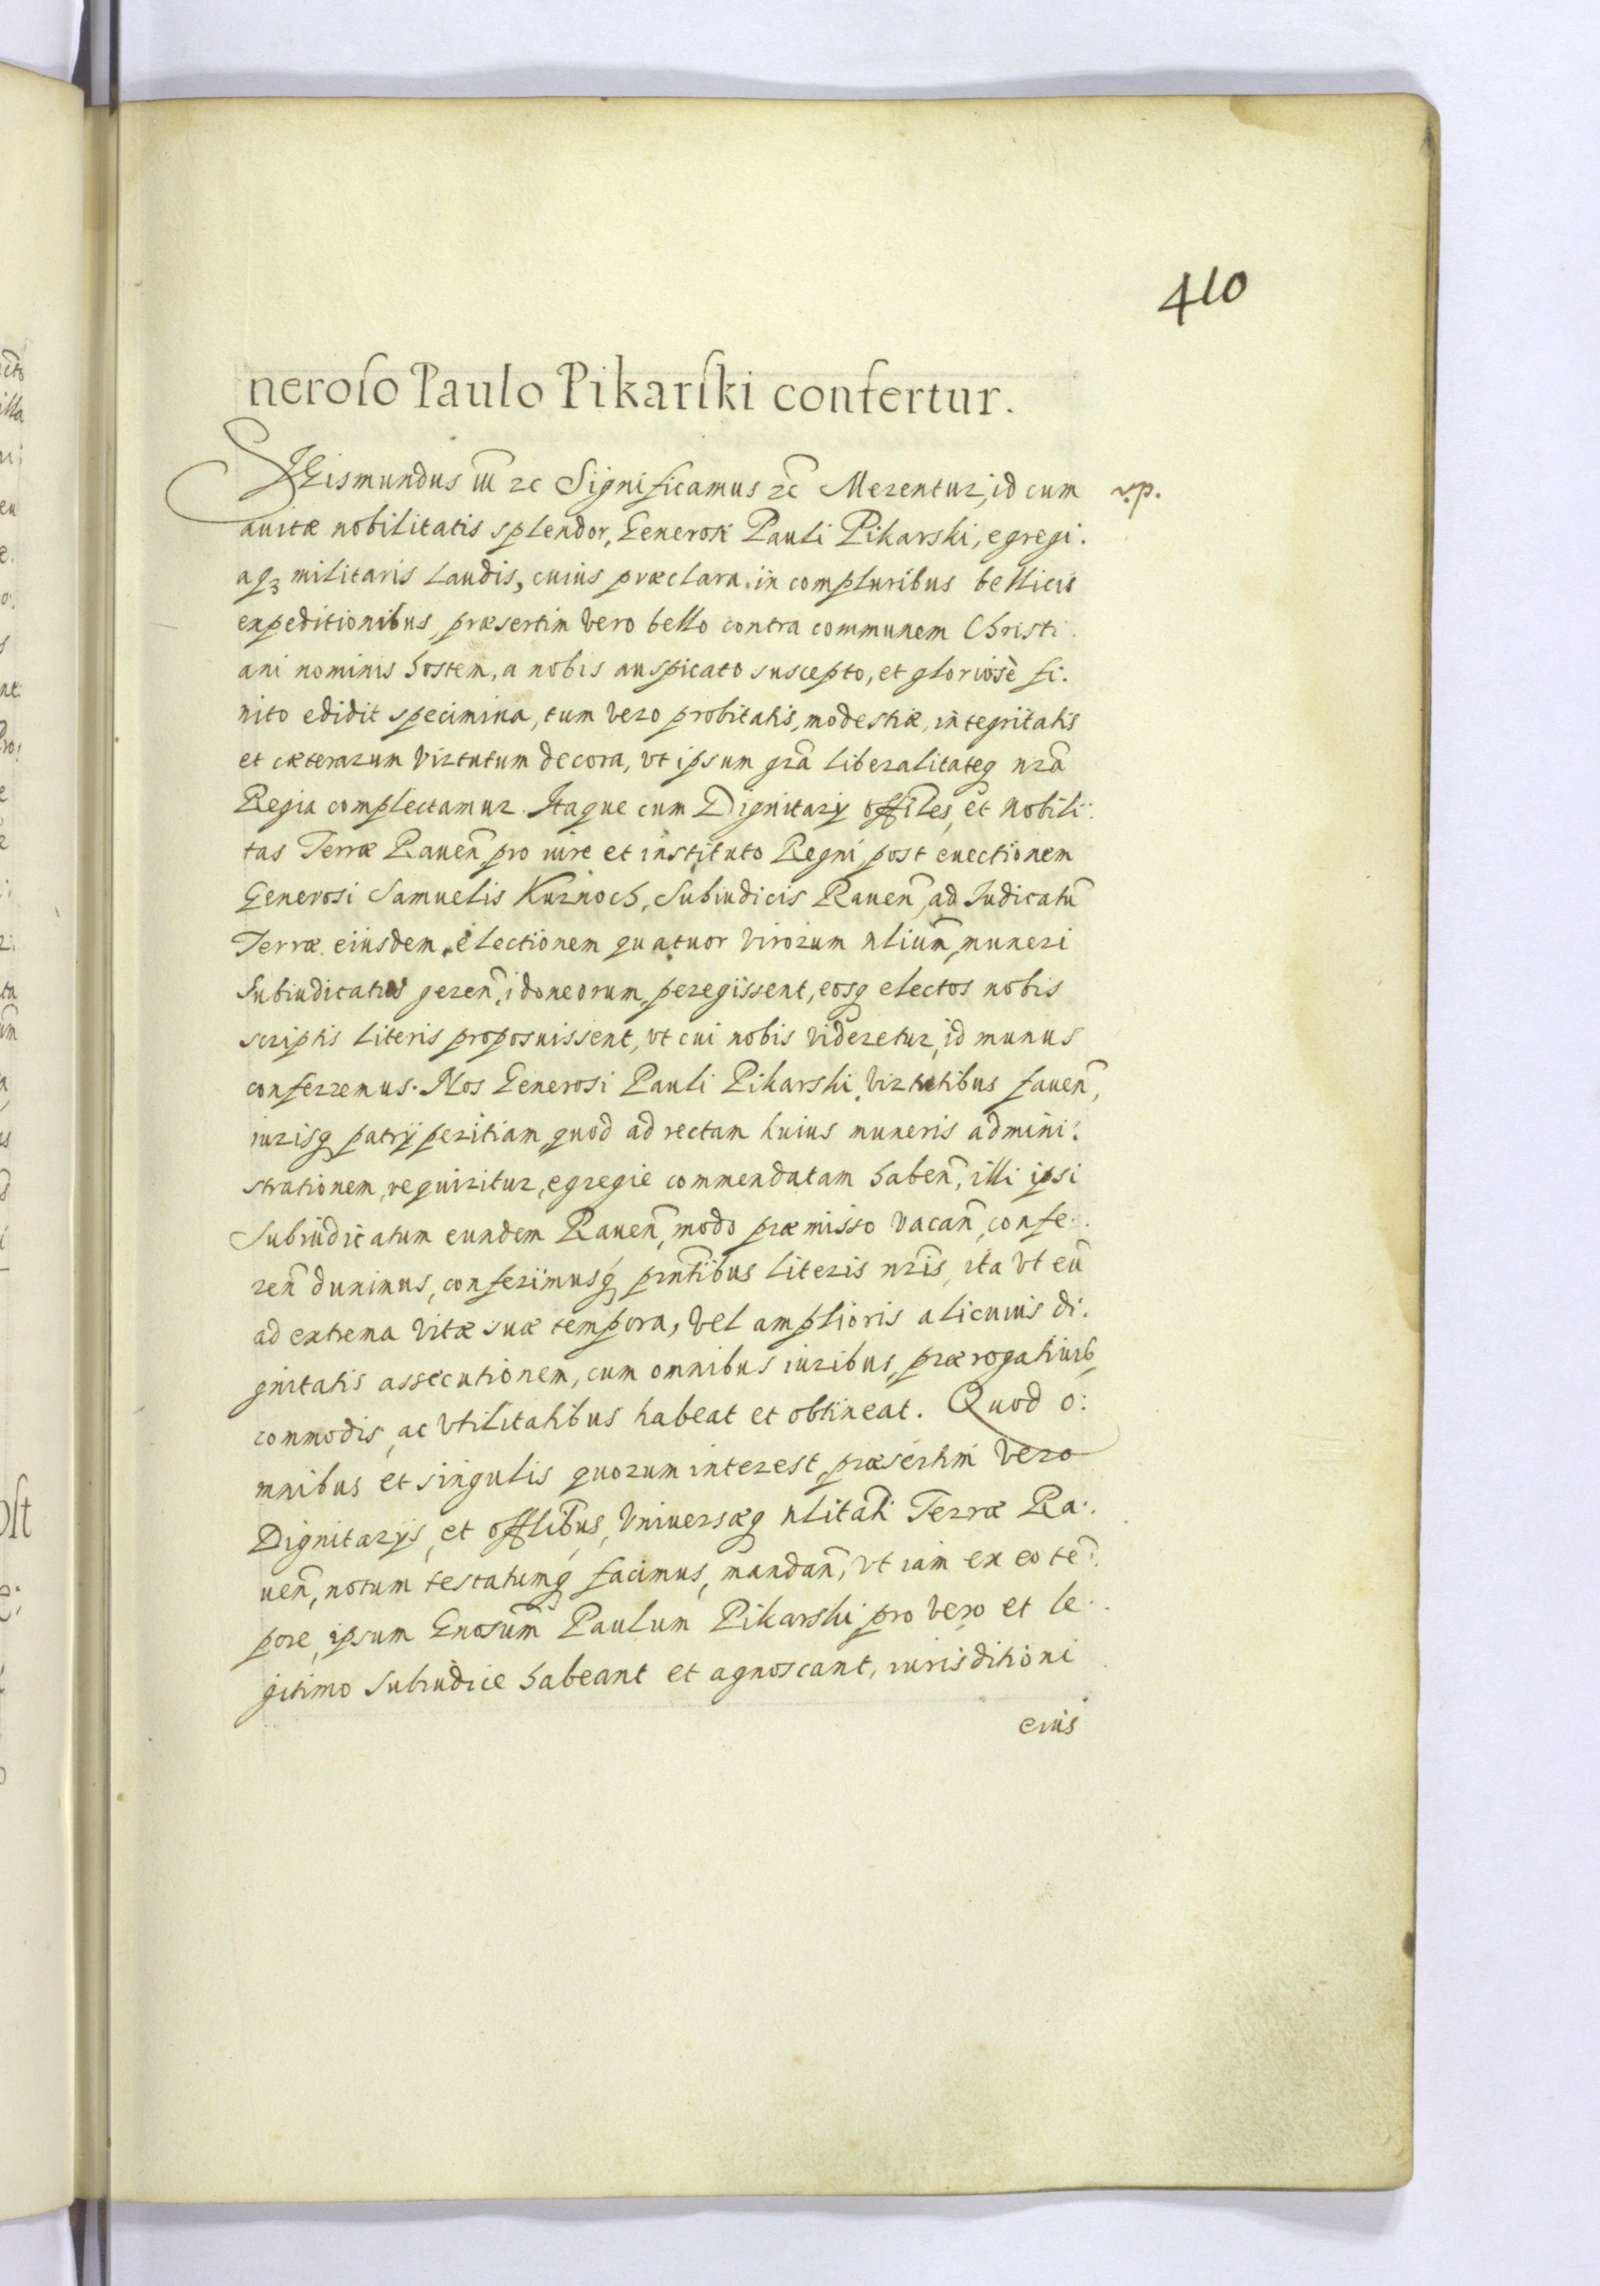 410
neroso Paulo Pikarski confertur.
Sigismundus iii zc Significamus zc Merentur, id cum
v.p.
auitæ nobilitatis splendor, Generosi Pauli Pikarski, egregi.
aq3 militaris laudis, cuius præclara in compluribus bellicis
expeditionibus, præsertim vero bello contra communem Christi.
ani nominis hostem, a nobis auspicato suscepto, et gloriosè fi.
nito edidit specimina, tum vero probitatis, modestiæ, integritatis
et cæterarum virtutum decora, vt ipsum grã liberalitateq nrã
Regia complectamur. Itaque cum Dignitarij offiles, et Nobili:
tas Terræ Rauen̄ pro iure et instituto Regni post euectionem
Generosi Samuelis Kuznoch, Subiudicis Rauen̄, ad Iudicatū
Terræ eiusdem, electionem quatuor virorum nlium̄, muneri
Subiudicatus geren̄, idoneorum, peregissent, eosq electos nobis
scriptis literis proposuissent, vt cui nobis videretur, id munus
conferremus. Nos Generosi Pauli Pikarski virtutibus fauen̄,
iurisq patrij peritiam, quod ad rectam huius muneris admini:
strationem, requiritur, egregie commendatam haben̄, illi ipsi
Subiudicatum eundem Rauen̄, modo præmisso vacan̄, confe:
ren̄ duximus, conferimusq́ prn̄tibus literis nr̄is, ita vt eū
ad extrema vitæ suæ tempora, vel amplioris alicuius di:
gnitatis assecutionem, cum omnibus iuribus, prærogatiuis,
commodis, ac vtilitatibus habeat et obtineat. Quod o:
mnibus et singulis quorum interest, præsertim vero
Dignitarijs, et offlibus, vniuersæq nlitati Terræ Ra:
uen̄, notum testatumq́ facimus, mandan̄, vt iam ex eo tē:
pore, ipsum Gnosum̄ Paulum Pikarski pro vero et le:
gitimo Subiudice habeant et agnoscant, iurisditioni
eius